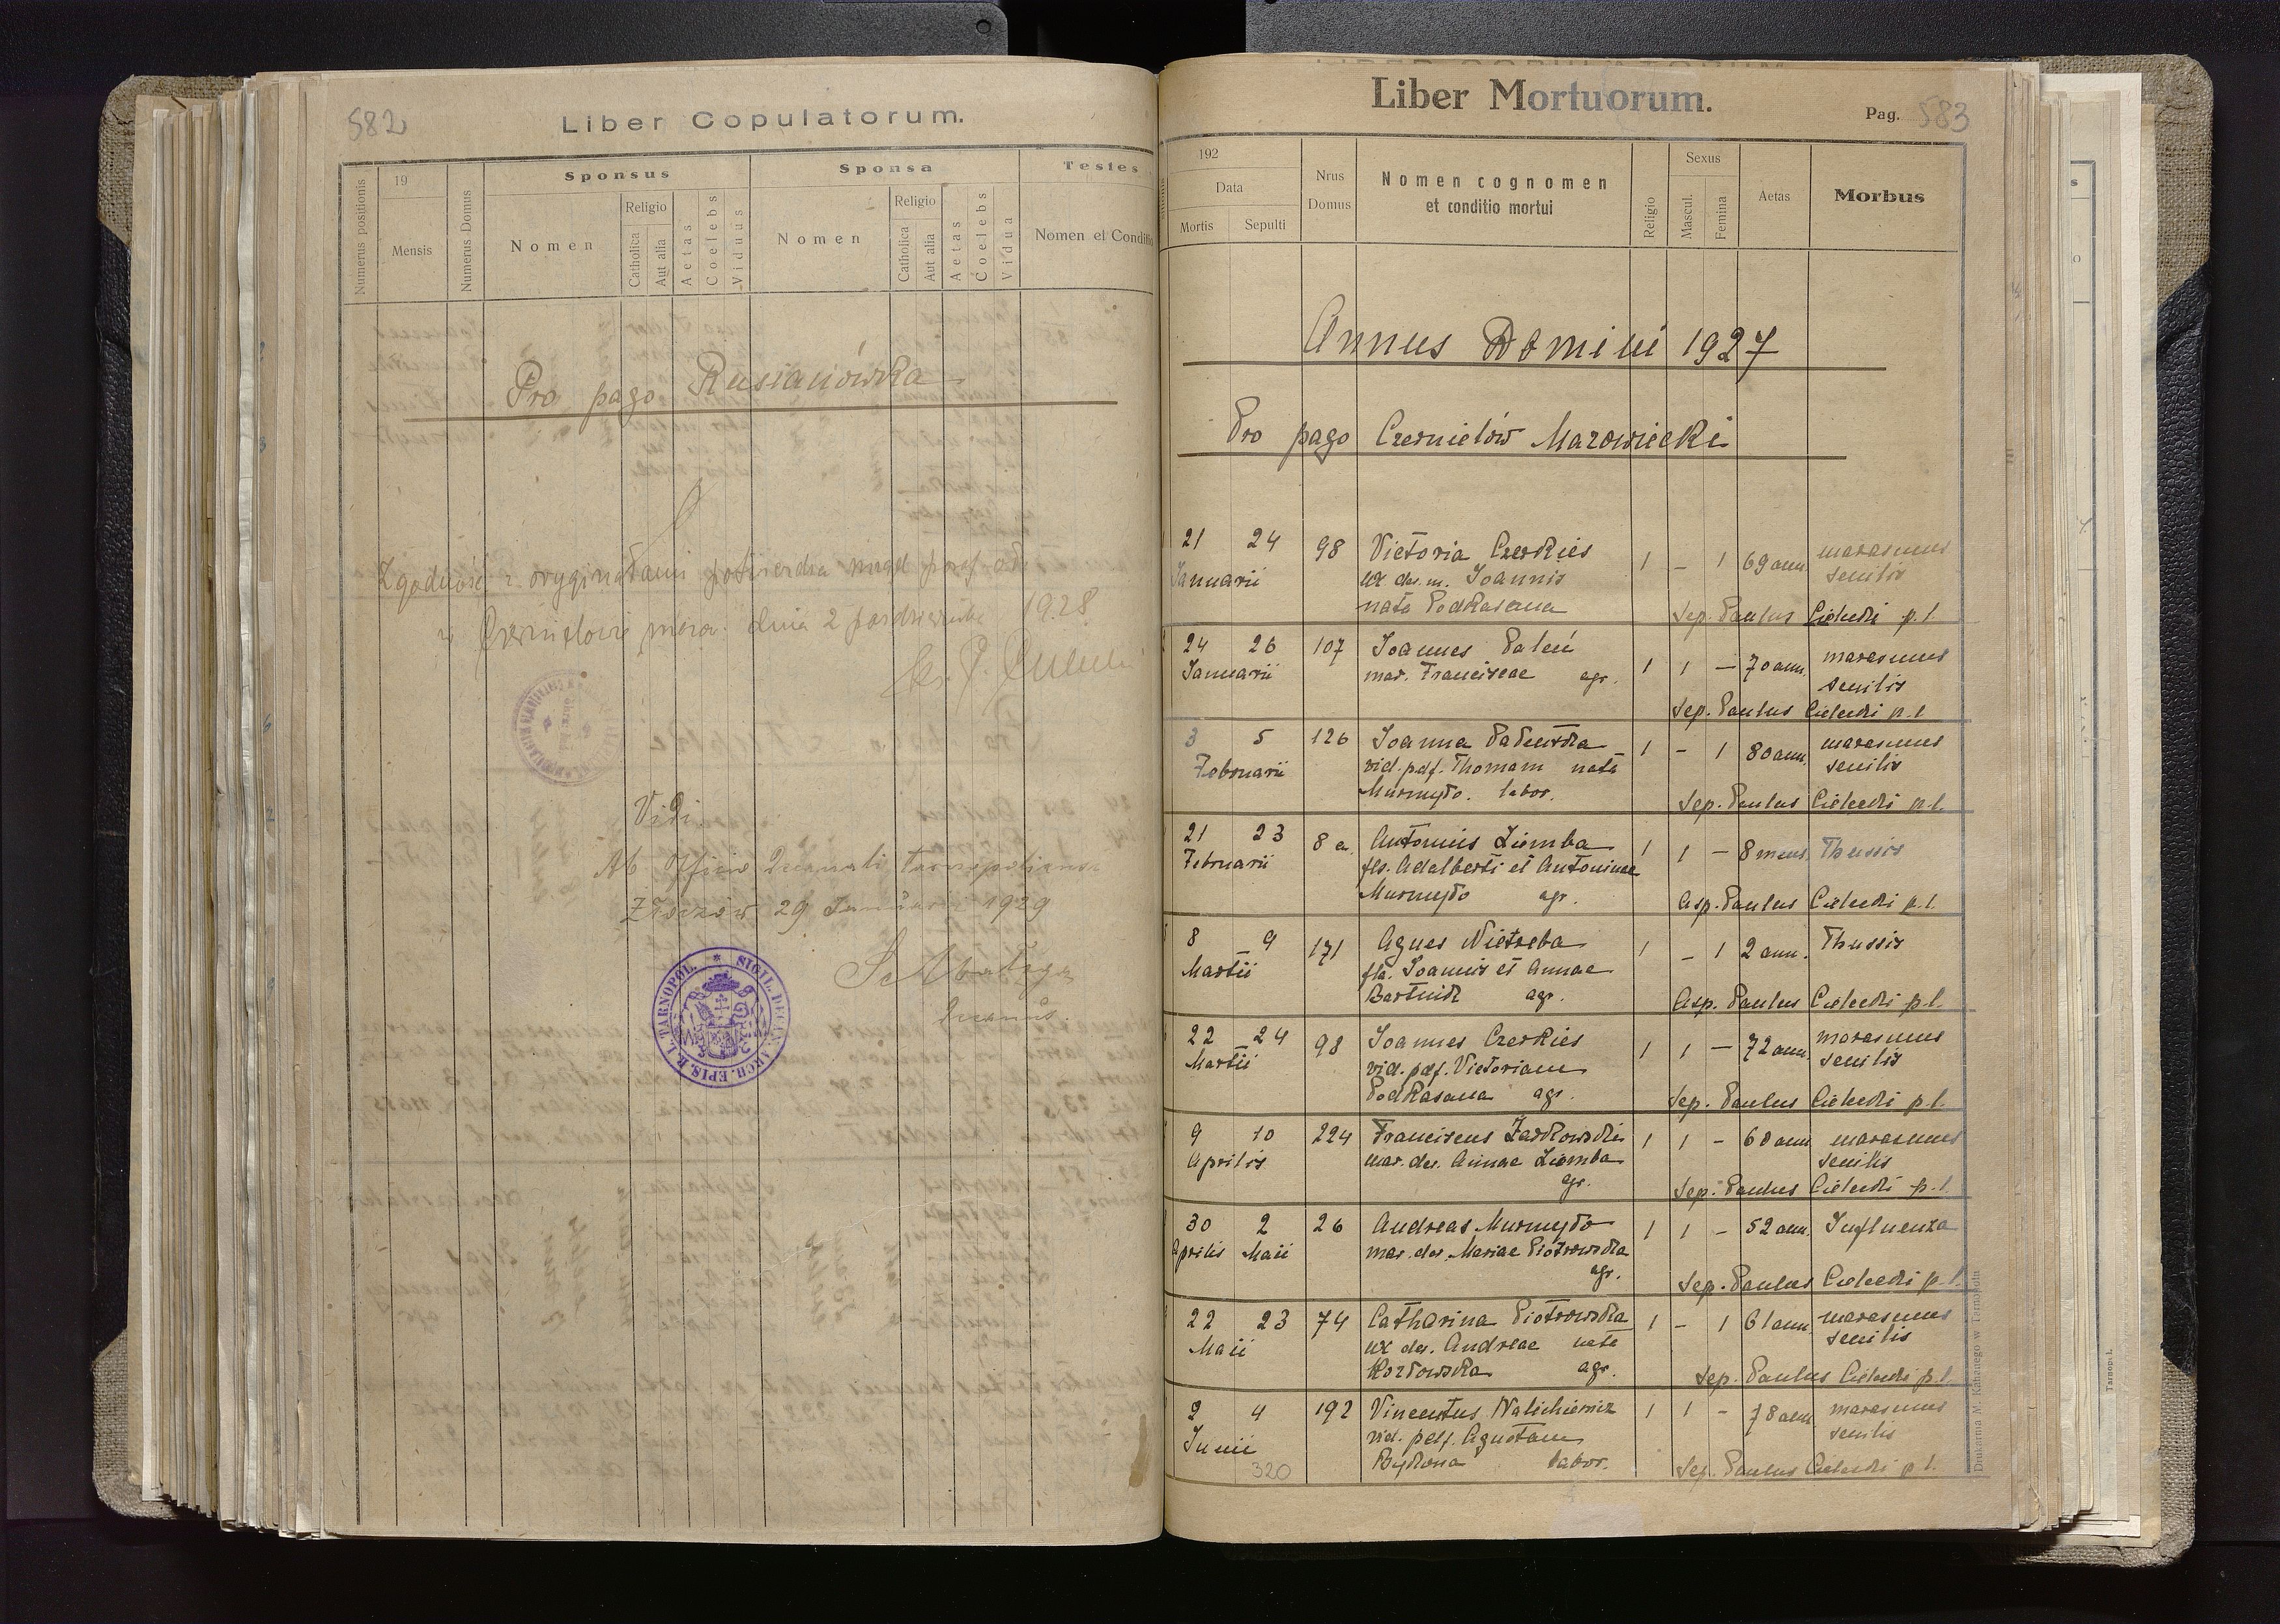 582
Liber Copulatorum.
Numerus positionis
19
Mensis
Numerus Domus
Sponsus
Nomen
Religio
Catholica
Aut alia
Aetas
Coelebs
Viduus
Sponsa
Nomen
Religio
Catholica
Aut alia
Aetas
Coelebs
Vidua
Testes
Nomen et Conditio
Pro pago Rusianówka
Zgodność z oryginałami potwierdza urząd paraf.
w dnia 2 października 1928
Vidi.
Ab Officio Decanali
Złoczów 29 Januarii 1929
Decanus.
SIGIL. DECAN. ARCH. EPIS. R. L. TARNOPOL.
Liber Mortuorum.
Pag. 583
192
Data
Mortis
Sepulti
Nrus Domus
Nomen cognomen
et conditio mortui
Religio
Sexus
Mascul.
Femina
Aetas
Morbus
Annus Domini 1927
Pro pago Czernielów Mazowiecki
21 24 98 Victoria Czerkies 1 – 1 69 ann. marasmus
Januarii ux des. m. Joannis senilis
nata Podkasana Sep. Paulus Cielecki p.l.
24 26 107 Joannes Paleń 1 1 – 70 ann. marasmus
Januarii mar. Franciscae agr. senilis
Sep. Paulus Cielecki p.l.
3 5 126 Joanna 1 – 1 80 ann. marasmus
Februarii vid. p. def. Thomam nata senilis
Murmyło. labor. Sep. Paulus Cielecki p.l.
21 23 8 a. Antonius Ziomba 1 1 – 8 mens. Thussis
Februarii fls. Adalberti et Antoninae
Murmyło agr. Asp. Paulus Cielecki p.l.
8 9 171 Agnes Nietreba 1 – 1 2 ann. Thussis
Martii fla. Joannis et Annae
Bartnik agr. Asp. Paulus Cielecki p.l.
22 24 98 Joannes Czerkies 1 1 – 72 ann. marasmus
Martii vid. p. def. Victoriam senilis
Podkasana agr. Sep. Paulus Cielecki p.l.
9 10 224 Franciscus Żarkowski 1 1 – 60 ann. marasmus
Aprilis mar. des. Annae Ziomba senilis
agr. Sep. Paulus Cielecki p.l.
30 2 26 Andreas Murmyło 1 1 – 52 ann. Influenza
Aprilis Maii mar. des. Mariae Piotrowska
agr. Sep. Paulus Cielecki p.l.
22 23 74 Catharina Piotrowska 1 – 1 61 ann. marasmus
Maii ux des. Andreae nata senilis
Kozłowska agr. Sep. Paulus Cielecki p.l.
2 4 192 Vincentus Walichiewicz 1 1 – 78 ann. marasmus
Junii vid. p. def. Agnetam senilis
Bykona labor. Sep. Paulus Cielecki p.l.
320
Drukarnia M. Kahanego w Tarnopolu
Tarnopol.